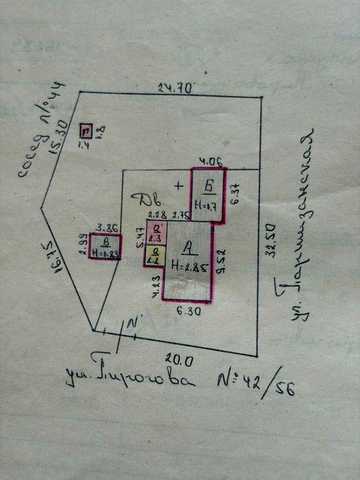 24.70
сосед №44
15.30
1.8
1.4
4.06
Б
H=1.7
6.37
ул. Партизанская
Дв.
+
2.28
2.75
3.86
2.99
В
H=1.83
5.47
а
2.3
А
H=2.85
9.52
32.50
а
2.2
16.75
4.23
6.30
N
20.0
ул. Пирогова №42/56